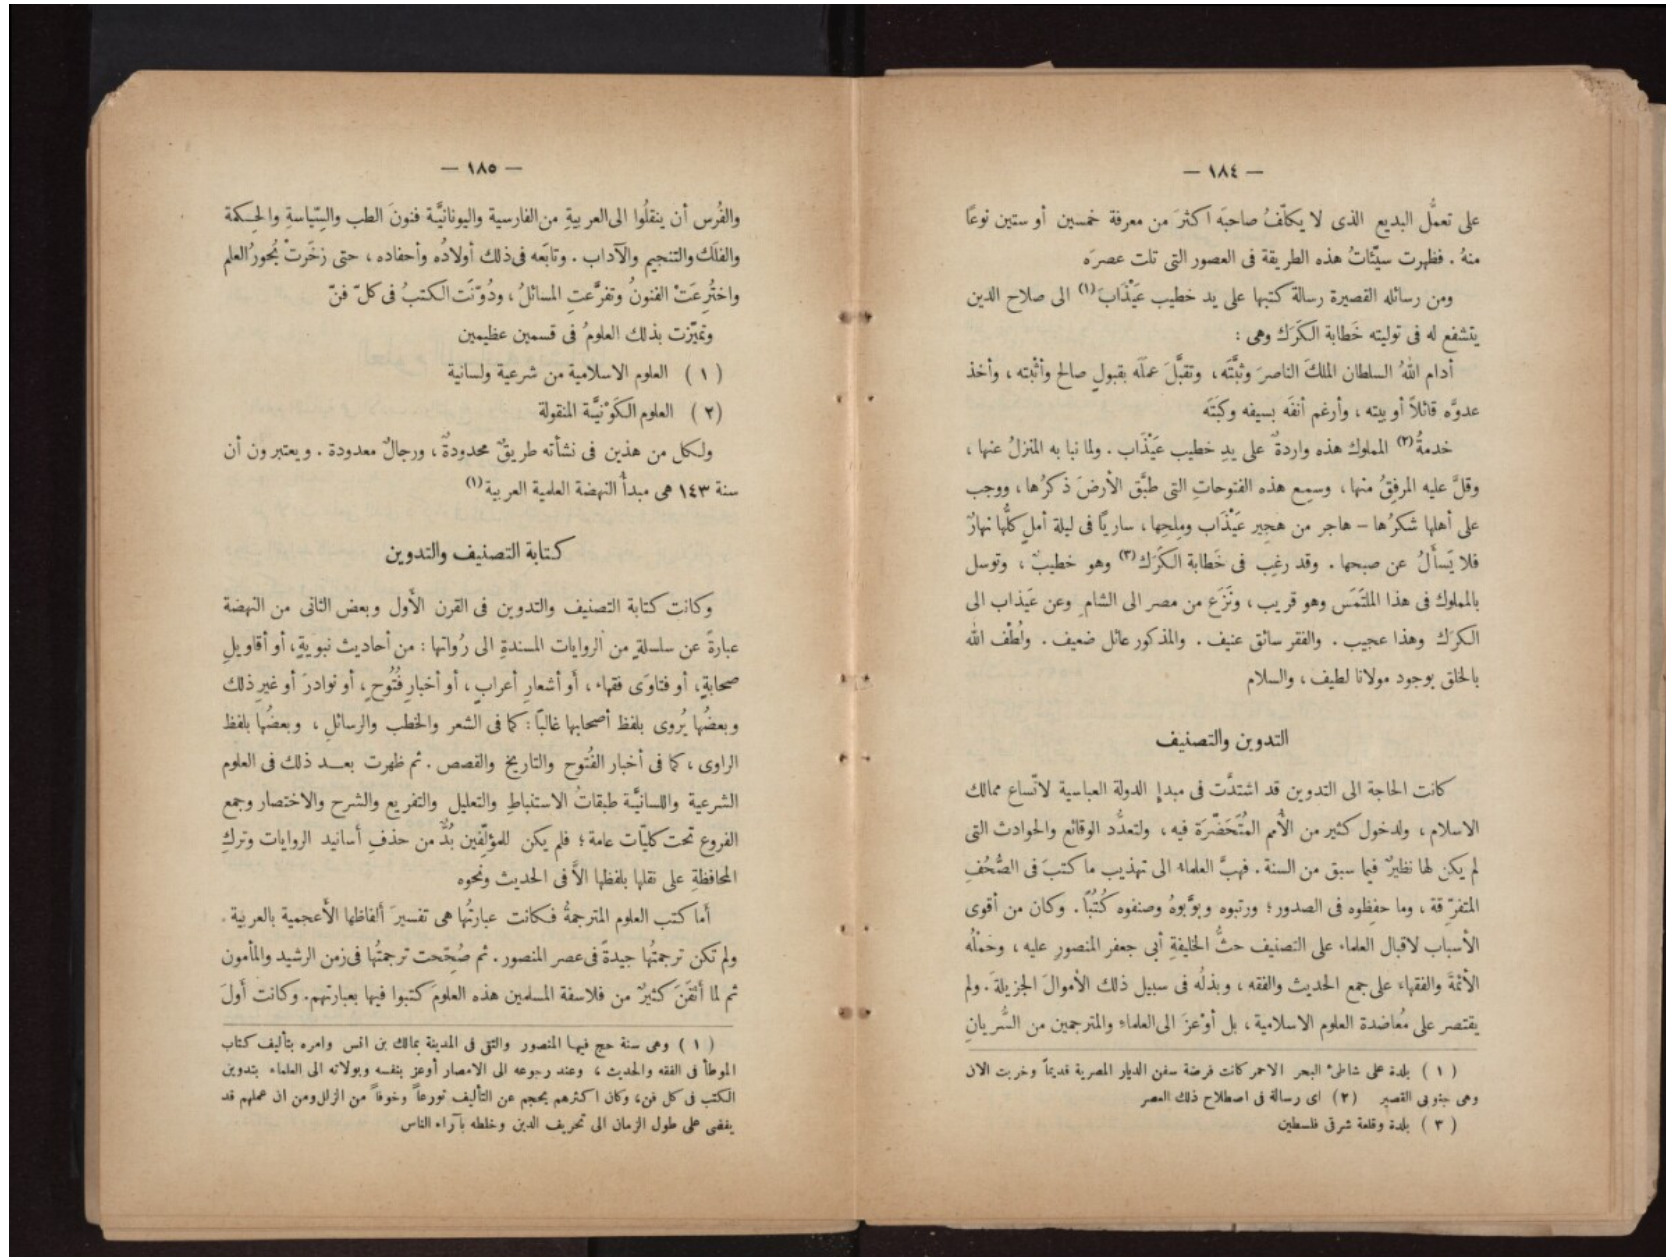 — ١٨٤ —
على تعمُّل البديع الذى لا يكلّفُ صاحبَه اكثرَ من معرفة خمسين أو ستين نوعًا
منهُ . فظهرت سيّئاتُ هذه الطريقة فى العصور التى تلت عصرَه
ومن رسائله القصيرة رسالة كتبها على يد خطيب عَيْذَابَ (١) الى صلاح الدين
يتشفع له فى توليته خَطابة الكَرَك وهى :
أدام اللهُ السلطان الملكَ الناصرَ وثبَّتَه ، وتقبَّلَ عملَه بقبولٍ صالح وأثبْته ، وأخذ
عدوَّه قائلاً أو بيته ، وأرغم أنفَه بسيفه وكبَتَه
خدمةُ (٢) المملوك هذه واردةٌ على يدِ خطيب عَيْذَاب . ولما نبا به المنزلُ عنها ،
وقلَّ عليه المرفِقُ منها ، وسمِع هذه الفتوحاتِ التى طبَّق الأرضَ ذكرُها ، ووجب
على أهلها شكرُها – هاجر من هجيرِ عَيْذَاب ومِلحِها ، ساريًا فى ليلة أملٍ كلُّها نهارٌ
فلا يَسأَلُ عن صبحها . وقد رغِب فى خَطابة الكَرَك (٣) وهو خطيبٌ ، وتوسل
بالمملوك فى هذا الملتَمَس وهو قريب ، ونَزَع من مصر الى الشامِ وعن عَيذاب الى
الكرَك وهذا عجيب . والفقر سائق عنيف . والمذكور عائل ضعيف . ولُطْف الله
بالخلق بوجود مولانا لطيف ، والسلام
التدوين والتصنيف
كانت الحاجة الى التدوين قد اشتدَّت فى مبدإ الدولة العباسية لاتّساع ممالك
الاسلام ، ولدخول كثير من الأُمم المُتَحَضّرَة فيه ، ولتعدُّد الوقائع والحوادث التى
لم يكن لها نظيرٌ فيما سبق من السنة . فهبَّ العلماءُ الى تهذيب ما كتبَ فى الصُّحُفِ
المتفرّقة ، وما حفِظوه فى الصدور ؛ ورتبوه وبوَّبوهُ وصنفوه كُتُبًا . وكان من أقوى
الأسباب لاقبال العلماء على التصنيف حثُّ الخليفةِ أبى جعفر المنصورِ عليه ، وحَمْلُه
الأئمَّةَ والفقهاء على جمع الحديث والفقه ، وبذلُه فى سبيل ذلك الأموالَ الجزيلةَ . ولم
يقتصر على مُعاضدة العلوم الاسلامية ، بل أوْعزَ الى العلماءِ والمترجمين من السُّريانِ
( ١ ) بلدة على شاطئ البحر الاحمر كانت فرضة سفن الديار المصرية قديماً وخربت الان
وهى جنوبى القصير (٢) اى رسالة فى اصطلاح ذلك العصر
( ٣ ) بلدة وقلعة شرقى فلسطين
— ١٨٥ —
والفُرس أن ينقلُوا الى العربيةِ من الفارسية واليونانيَّة فنونَ الطب والسِّياسةِ والحِكمة
والفلَك والتنجيم والآداب . وتابَعه فى ذلك أولادُه وأحفاده ، حتى زخَرتْ بُحورُ العلم
واختُرِعَتْ الفنونُ وتفرَّعتِ المسائلُ ، ودُوّنَت الكتبُ فى كلّ فنّ
وتميّزت بذلك العلومُ فى قسمين عظيمين
( ١ ) العلوم الاسلامية من شرعية ولسانية
( ٢ ) العلوم الكَوْنيَّة المنقولة
ولكل من هذين فى نشأته طريقٌ محدودةٌ ، ورجالٌ معدودة . ويعتبرون أن
سنة ١٤٣ هى مبدأُ النهضة العلمية العربية (١)
كتابة التصنيف والتدوين
وكانت كتابة التصنيف والتدوين فى القرن الأَول وبعض الثانى من النهضة
عبارةً عن سلسلةٍ من الروايات المسندةِ الى رُواتها : من أحاديث نبويةٍ ، أو أقاويلِ
صحابةٍ ، أو فتاوَى فقهاء ، أو أشعارِ أعرابٍ ، أو أخبارِ فُتُوحٍ ، أو نوادرَ أو غيرِ ذلك
وبعضُها يُروى بلفظ أصحابها غالبًا : كما فى الشعر والخطب والرسائلِ ، وبعضُها بلفظ
الراوى ، كما فى أخبار الفُتوح والتاريخ والقصص . ثم ظهرت بعد ذلك فى العلوم
الشرعية واللسانيَّة طبقاتُ الاستنباطِ والتعليل والتفريع والشرح والاختصار وجمع
الفروع تحت كليّات عامة ؛ فلم يكن للمؤلِّفين بُدٌّ من حذفِ أسانيد الروايات وتركِ
المحافظةِ على نقلها بلفظها الاَّ فى الحديث ونحوه
أما كتب العلوم المترجمةُ فكانت عبارتُها هى تفسيرَ ألفاظها الأَعجمية بالعربية .
ولم تكن ترجمتُها جيدةً فى عصر المنصور . ثم صُحِّحت ترجمتُها فى زمن الرشيد والمأمون
ثم لما أَتقَنَ كثيرٌ من فلاسفة المسلمين هذه العلومَ كتبوا فيها بعبارتهم . وكانت أولَ
( ١ ) وهى سنة حج فيها المنصور والتقى فى المدينة بمالك بن انس وامره بتأليف كتاب
الموطأ فى الفقه والحديث ، وعند رجوعه الى الامصار أوعز بنفسه وبولاته الى العلماء بتدوين
الكتب فى كل فن ، وكان اكثرهم يحجم عن التأليف تورعاً وخوفاً من الزلل ومن ان عملهم قد
يفضى على طول الزمان الى تحريف الدين وخلطه بآراء الناس